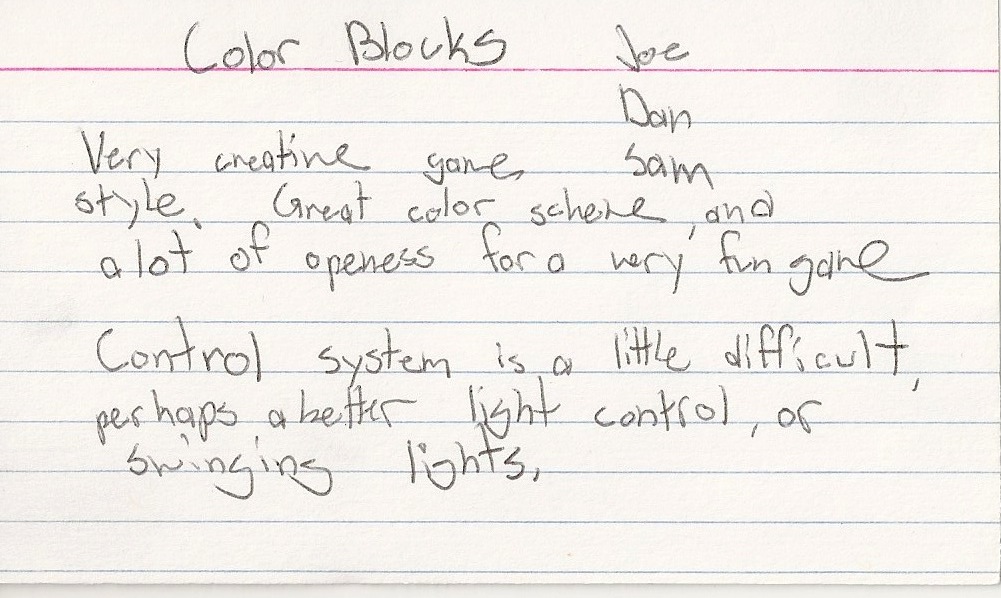 Color Blocks Joe
Dan
Sam
Very creative game
style. Great color scheme, and
a lot of openess for a very fun game
Control system is a little difficult,
perhaps a better light control, or
swinging lights.